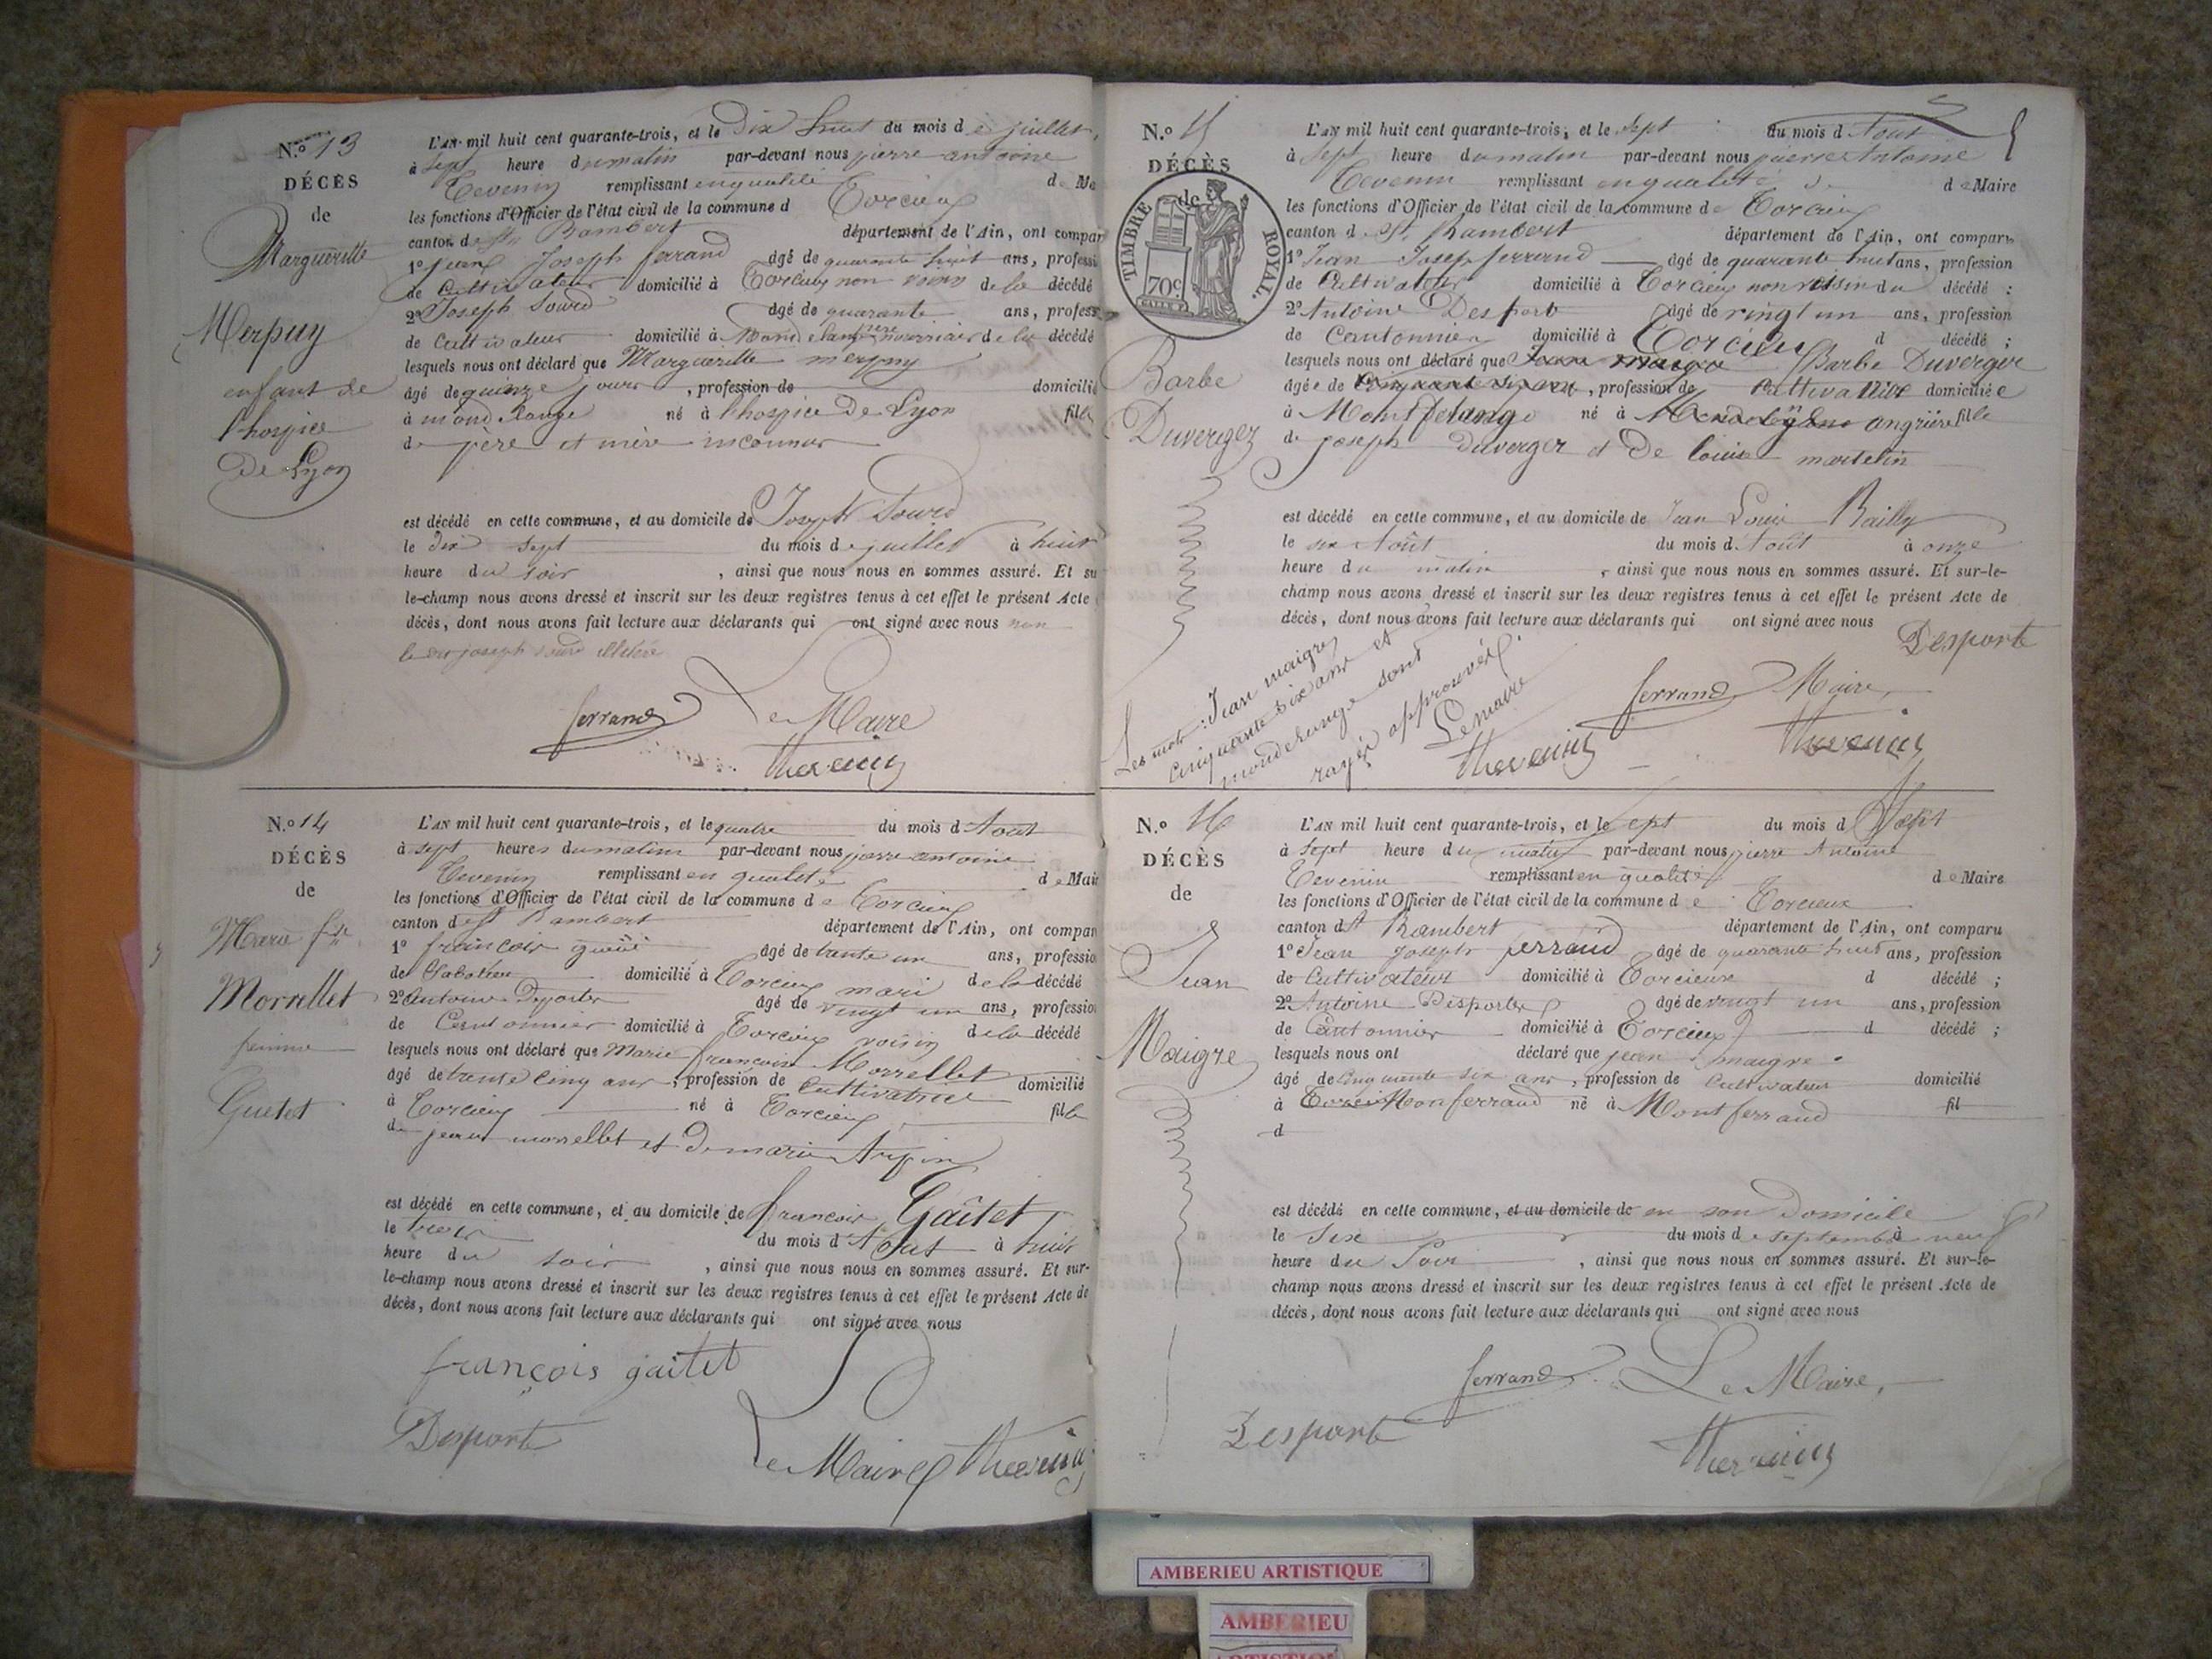 N.o 13
DÉCÈS
de
Margueritte
Merpuy
enfant de
l'hospice
De Lyon
L'AN mil huit cent quarante-trois, et le Dix huit du mois de juillet,
à sept heure du matin par-devant nous pierre antoine
Tevenin remplissant en qualité de Ma
les fonctions d'Officier de l'état civil de la commune d Torcieu
canton de St Rambert département de l'Ain, ont compar
1o jean Joseph ferrand âgé de quarante huit ans, professi
de Cultivateur domicilié à Torcieu non voisin de la décédé
2o Joseph Sourd âgé de quarante ans, profess
de Cultivateur domicilié à père nourricier de la décédé
lesquels nous ont déclaré que Marguerille merpuy
âgé de quinze jours, profession de domicilié
à mond Lange né à l'hospice De Lyon fille
de pere et mère inconnus
est décédé en cette commune, et au domicile de Joseph Sourd
le dix sept du mois de juillet à huit
heure du soir, ainsi que nous nous en sommes assuré. Et su
le-champ nous avons dressé et inscrit sur les deux registres tenus à cet effet le présent Acte
décès, dont nous avons fait lecture aux déclarants qui ont signé avec nous non
le dit joseph Sourd
ferrand Le Maire
Thevenin
N.o 14
DÉCÈS
de
Marie fse
Morrellet
femme
Guetet
L'AN mil huit cent quarante-trois, et le quatre du mois d Aout
à sept heures du matin par-devant nous antoine
Tevenin remplissant en qualité de Mair
les fonctions d'Officier de l'état civil de la commune de Torcieu
canton de St Rambert département de l'Ain, ont compar
1o francois âgé de trente un ans, professio
de domicilié à Torcieu mari de la décédé
2o Antoine Desportes âgé de vingt un ans, professio
de Centonnier domicilié à Torcieu voisin de la décédé
lesquels nous ont déclaré que Marie francoise Morrellet
âgé de trente cinq ans, profession de Cultivatrice domicilié
à Torcieu né à Torcieu fille
de jean morrellet et De marie Arpin
est décédé en cette commune, et au domicile de francois Gaîtet
le trois du mois d'Aout à huit
heure du soir, ainsi que nous nous en sommes assuré. Et sur-
le-champ nous avons dressé et inscrit sur les deux registres tenus à cet effet le présent Acte de
décès, dont nous avons fait lecture aux déclarants qui ont signé avec nous
françois gaitet
Desporte
Le Maire Thevenin
N.o 15
DÉCÈS
de
TIMBRE ROYAL.
70c
Barbe
Duverger
L'AN mil huit cent quarante-trois, et le sept du mois d Aout
à sept heure du matin par-devant nous pierre Antoine
Tevenin remplissant en qualité de Maire
les fonctions d'Officier de l'état civil de la commune de Torcieu
canton d St. Rambert département de l'Ain, ont comparu
1o Jean Josep ferrand âgé de quarante huit ans, profession
de Cultivateur domicilié à Torcieu non voisin du décédé :
2o Antoine Desport âgé de vingt un ans, profession
de Cantonnier domicilié à Torcieu d décédé ;
lesquels nous ont déclaré que Jean maigre Barbe Duverger
âgée de cinquante six ans, profession de Cultivatrice domiciliée
à Mont né à angrière fille
de joseph Duverger et De louise martelin
est décédé en cette commune, et au domicile de Jean Louis Bailly
le six Août du mois d Août à onze
heure du matin, ainsi que nous nous en sommes assuré. Et sur-le-
champ nous avons dressé et inscrit sur les deux registres tenus à cet effet le présent Acte de
décès, dont nous avons fait lecture aux déclarants qui ont signé avec nous
Desporte
ferrand Maire,
Thevenin
Les mots : Jean maigre
cinquante six ans et
mondelange sont
rayés approuvés.
Le maire
Thevenin
N.o 16
DÉCÈS
de
Jean
Maigre
L'AN mil huit cent quarante-trois, et le sept du mois d Sept
à sept heure du matin par-devant nous pierre Antoine
Tevenin remplissant en qualité de Maire
les fonctions d'Officier de l'état civil de la commune de Torcieux
canton d St Rambert département de l'Ain, ont comparu
1o Jean Joseph ferrand âgé de quarante huit ans, profession
de Cultivateur domicilié à Torcieux d décédé ;
2o Antoine Desportes âgé de vingt un ans, profession
de Cantonnier domicilié à Torcieux d décédé ;
lesquels nous ont déclaré que jean maigre
âgé de cinquante six ans, profession de Cultivateur domicilié
à Torcieu Monferrand né à Montferrand fil
d
est décédé en cette commune, et au domicile de en son Domicile
le Six du mois de septembre à neuf
heure du Soir, ainsi que nous nous en sommes assuré. Et sur-le-
champ nous avons dressé et inscrit sur les deux registres tenus à cet effet le présent Acte de
décès, dont nous avons fait lecture aux déclarants qui ont signé avec nous
ferrand Le Maire,
Desporte
Thevenin
AMBERIEU ARTISTIQUE
AMBERIEU
ARTISTIQUE